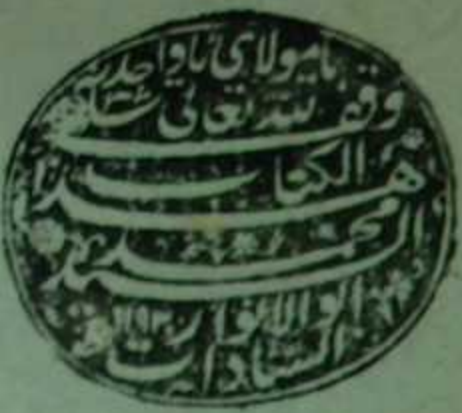 يا مولاي يا واحد
وقف لله تعالى
الكتاب
هذا
محمد
السيد
ابو الانوار
السادات